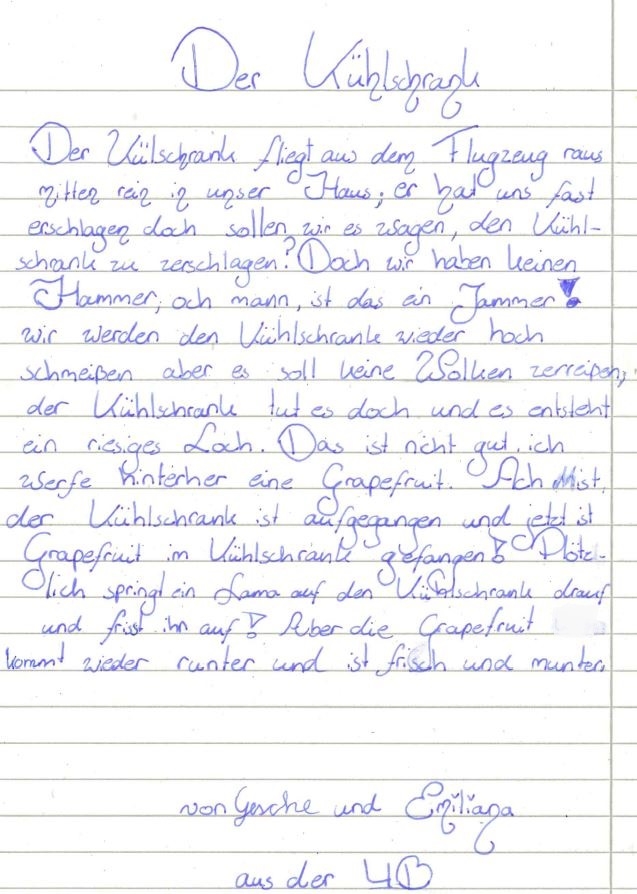 Der Kühlschrank
Der Külschrank fliegt aus dem Flugzeug raus
mitten rein in unser Haus; er hat uns fast
erschlagen doch sollen wir es wagen, den Kühl-
schrank zu zerschlagen? Doch wir haben keinen
Hammer, och mann, ist das ein Jammer!
wir werden den Kühlschrank wieder hoch
schmeißen aber es soll keine Wolken zerreißen,
der Kühlschrank tut es doch und es entsteht
ein riesiges Loch. Das ist nicht gut, ich
werfe hinterher eine Grapefruit. Ach Mist,
der Kühlschrank ist aufgegangen und jetzt ist
Grapefruit im Kühlschrank gefangen! Plötz-
lich springt ein Lama auf den Kühlschrank drauf
und frisst ihn auf! Aber die Grapefruit
kommt wieder runter und ist frisch und munter.
von Gesche und Emiliana
aus der 4B